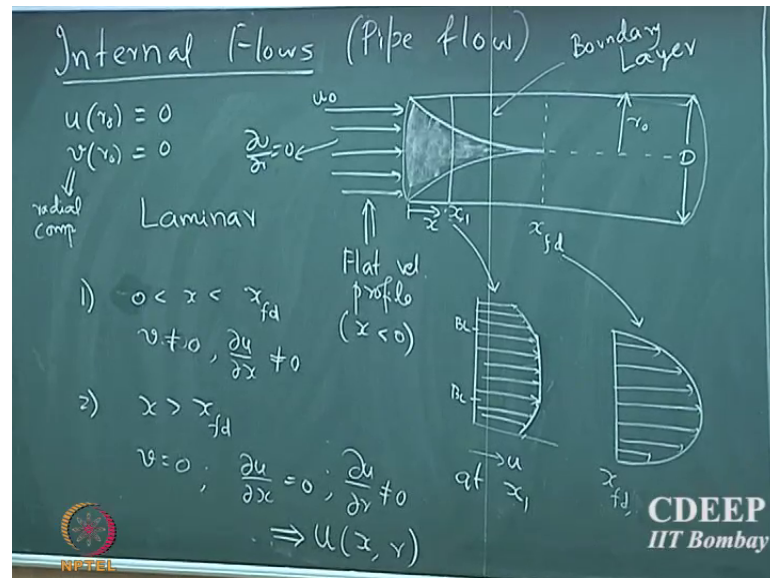 Internal Flows (Pipe flow)
Boundary
Layer
u(r₀) = 0
v(r₀) = 0
radial
comp
u₀
∂u/∂r = 0
r₀
D
x
x₁
x_fd
Laminar
Flat vel.
profile
(x < 0)
1) 0 < x < x_fd
v ≠ 0, ∂u/∂x ≠ 0
2) x > x_fd
v = 0; ∂u/∂x = 0; ∂u/∂r ≠ 0
⇒ u(x, r)
BL
BL
→ u
at x₁
x_fd
CDEEP
IIT Bombay
NPTEL